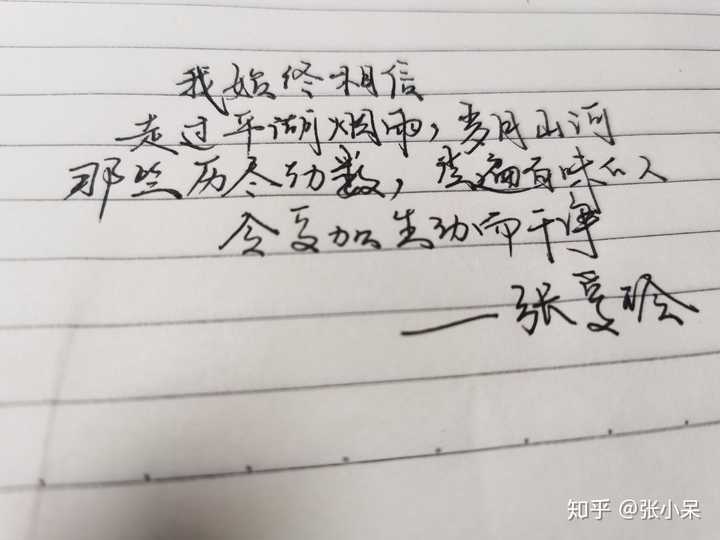 我始终相信
走过平湖烟雨，岁月山河
那些历尽劫数，尝遍百味的人
会更加生动而干净
——张爱玲
知乎 @张小呆